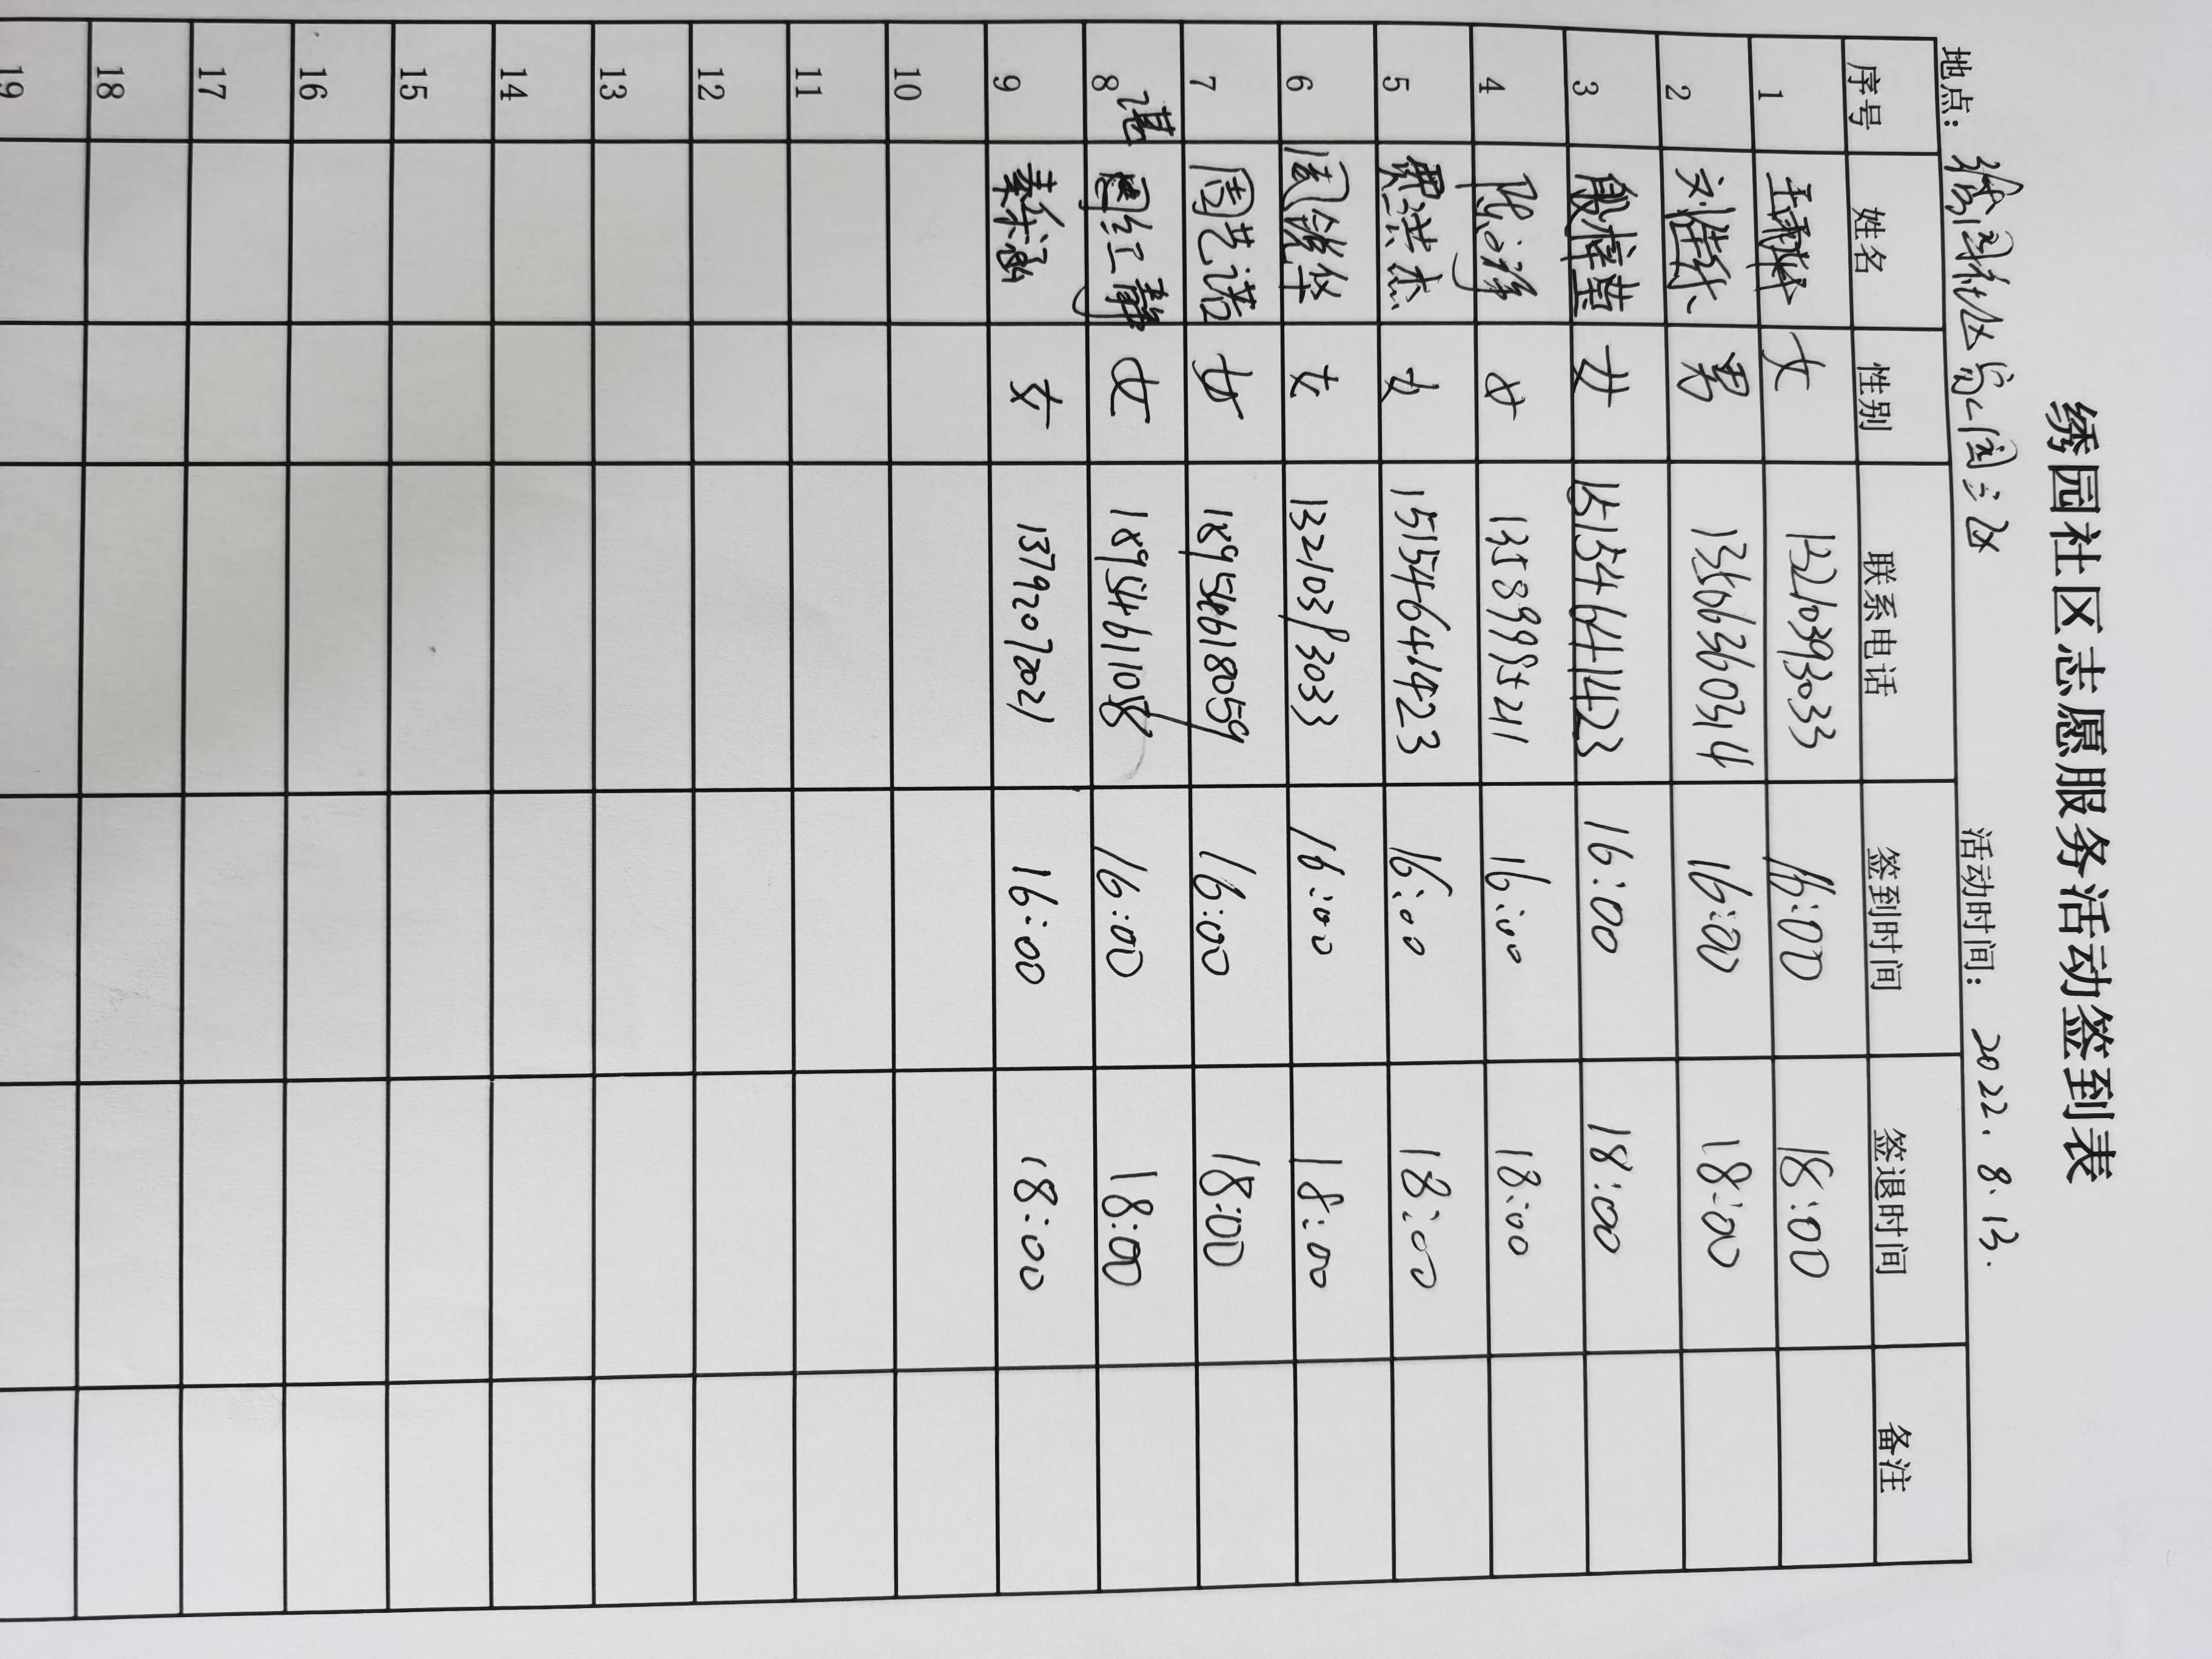 绣园社区志愿服务活动签到表
地点: 绣园社区 活动时间: 2022.8.13.
序号 姓名 性别 联系电话 签到时间 签退时间 备注
1 女 13210393033 16:00 18:00
2 刘 男 13563660314 16:00 18:00
3 女 15154641423 16:00 18:00
4 女 13589995211 16:00 18:00
5 贾洪杰 女 15154641423 16:00 18:00
6 周 华 女 16:00 18:00
7 周艺诺 女 18954618059 16:00 18:00
8 谌红静 女 16:00 18:00
9 秦 涵 女 13792072021 16:00 18:00
10
11
12
13
14
15
16
17
18
19